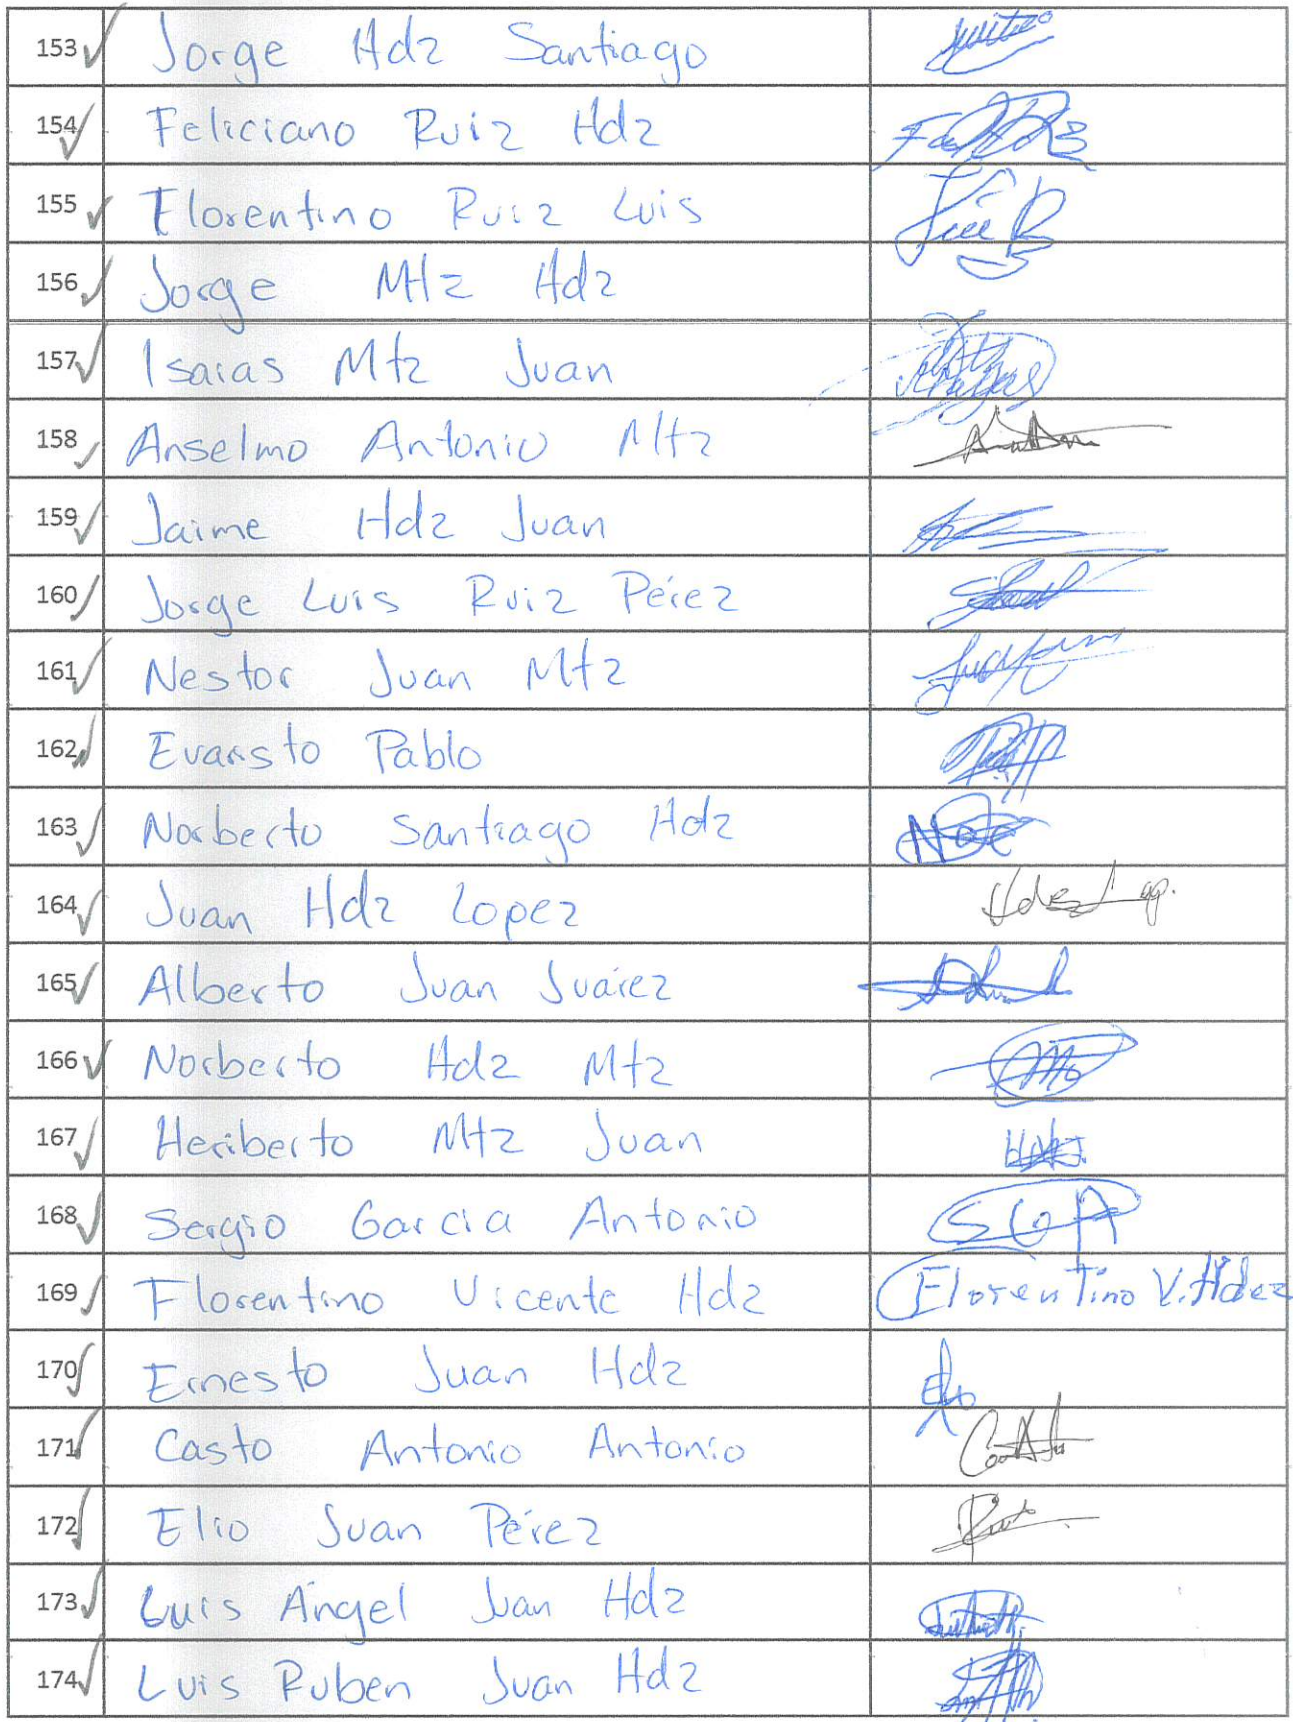 153 Jorge Hdz Santiago
154 Feliciano Ruiz Hdz
155 Florentino Ruiz Luis
156 Jorge Mtz Hdz
157 Isaias Mtz Juan
158 Anselmo Antonio Mtz
159 Jaime Hdz Juan
160 Jorge Luis Ruiz Pérez
161 Nestor Juan Mtz
162 Evaristo Pablo
163 Norberto Santiago Hdz
164 Juan Hdz Lopez
165 Alberto Juan Juárez
166 Norberto Hdz Mtz
167 Heriberto Mtz Juan
168 Sergio Garcia Antonio SGA
169 Florentino Vicente Hdz Florentino V. Hdez
170 Ernesto Juan Hdz
171 Casto Antonio Antonio
172 Elio Juan Pérez
173 Luis Ángel Juan Hdz
174 Luis Ruben Juan Hdz